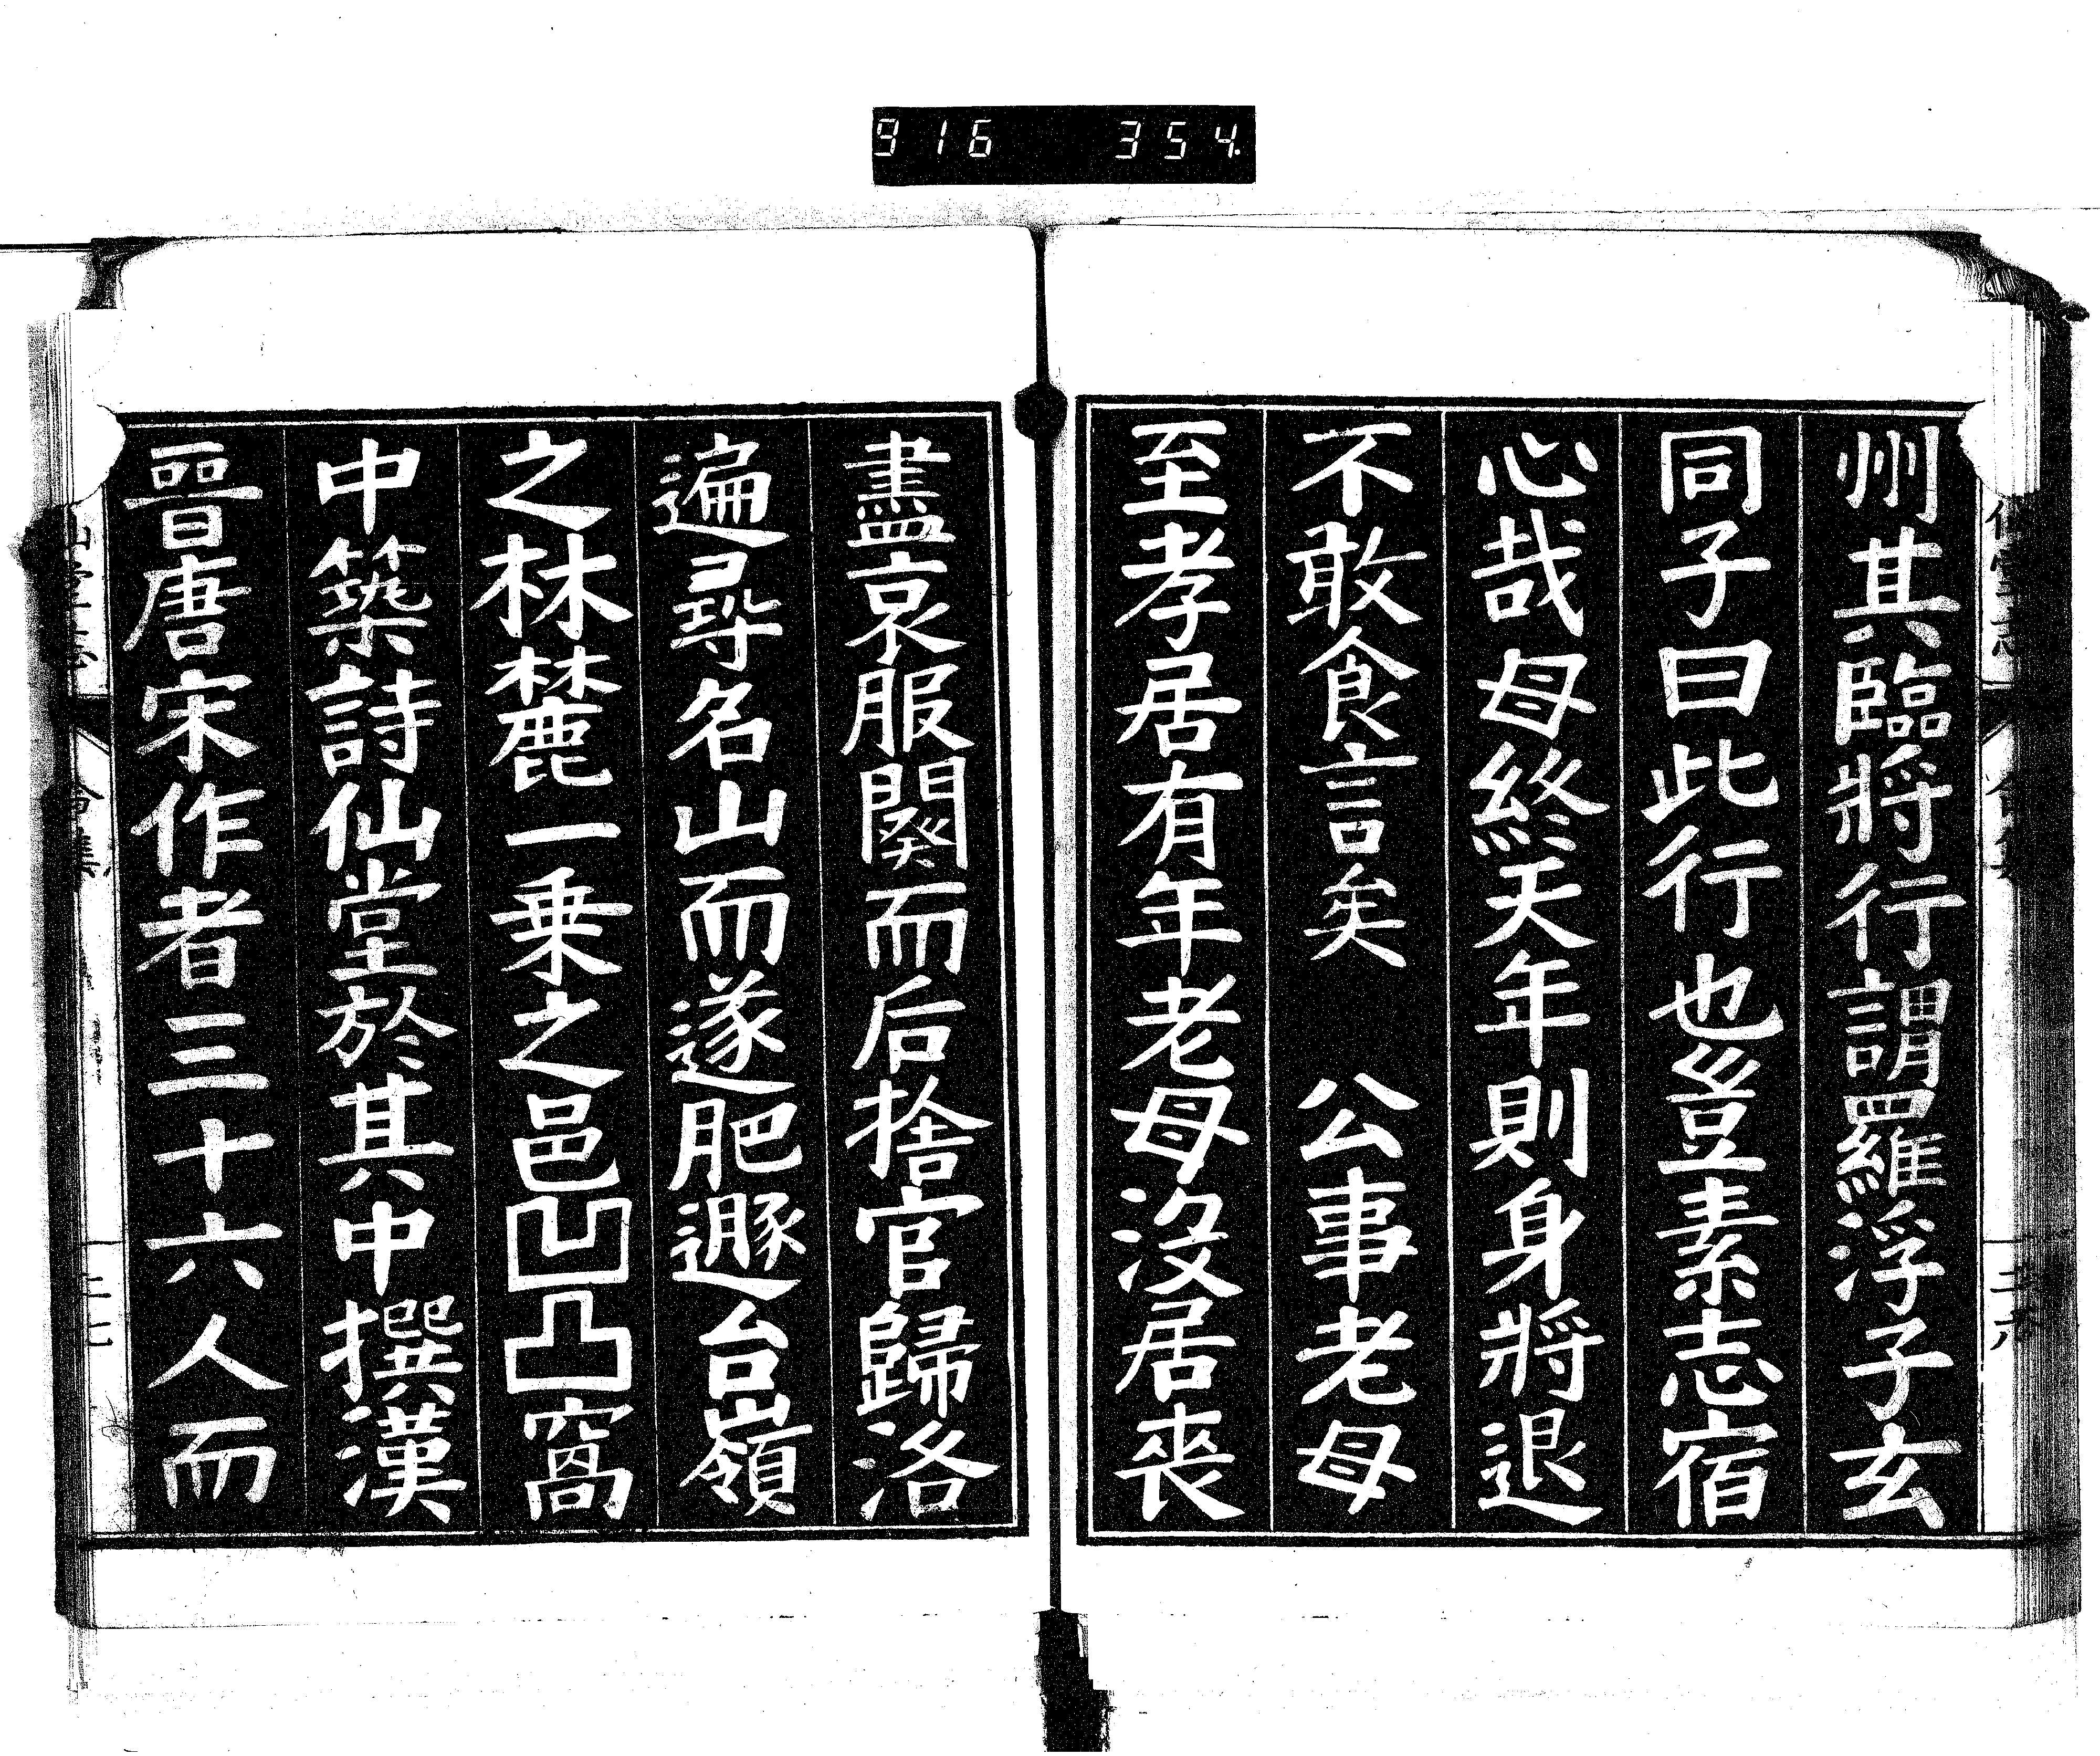 916 354
州其臨將行謂羅浮子玄
同子曰此行也豈素志宿
心哉母終天年則身將退
不敢食言矣　公事老母
至孝居有年老母沒居喪
盡哀服闋而后捨官歸洛
遍尋名山而遂肥遯台嶺
之林麓一乗之邑凹凸窩
中築詩仙堂於其中撰漢
晉唐宋作者三十六人而